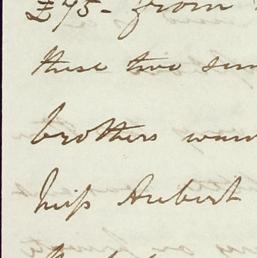 £75- from
these two sum
brothers
Miss Aubert